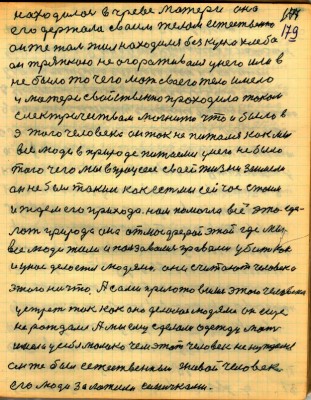 находился в чреве матери она
его держала своим телом естественно
он же там жил находился без куска хлеба
он тряпкою не огораживался у него или в
не было то чего мог своего тело имело
у матери свойственно проходило током
електричеством магнито что и было в
этого человека он ток не питался как мы
все люди в природе питаемся у него не было
того чего мы в процессе своей жизни заимели
он не был таким как есть мы сейчас стоим
и ждем его прихода. нам помогла всё это сде-
лать природа она атмосферой этой где мы
все люди жили и показывали правами убитков
и умно делости людями они считают человека
этого ничто. А сами при готовили этого человека
устретить как оно делали людями он еще
не рождался А мы ему сделали одежду мать
имела у себя молоко чем этот человек не нуждался
он же был естественный живой человек
его люди заложили симичками.